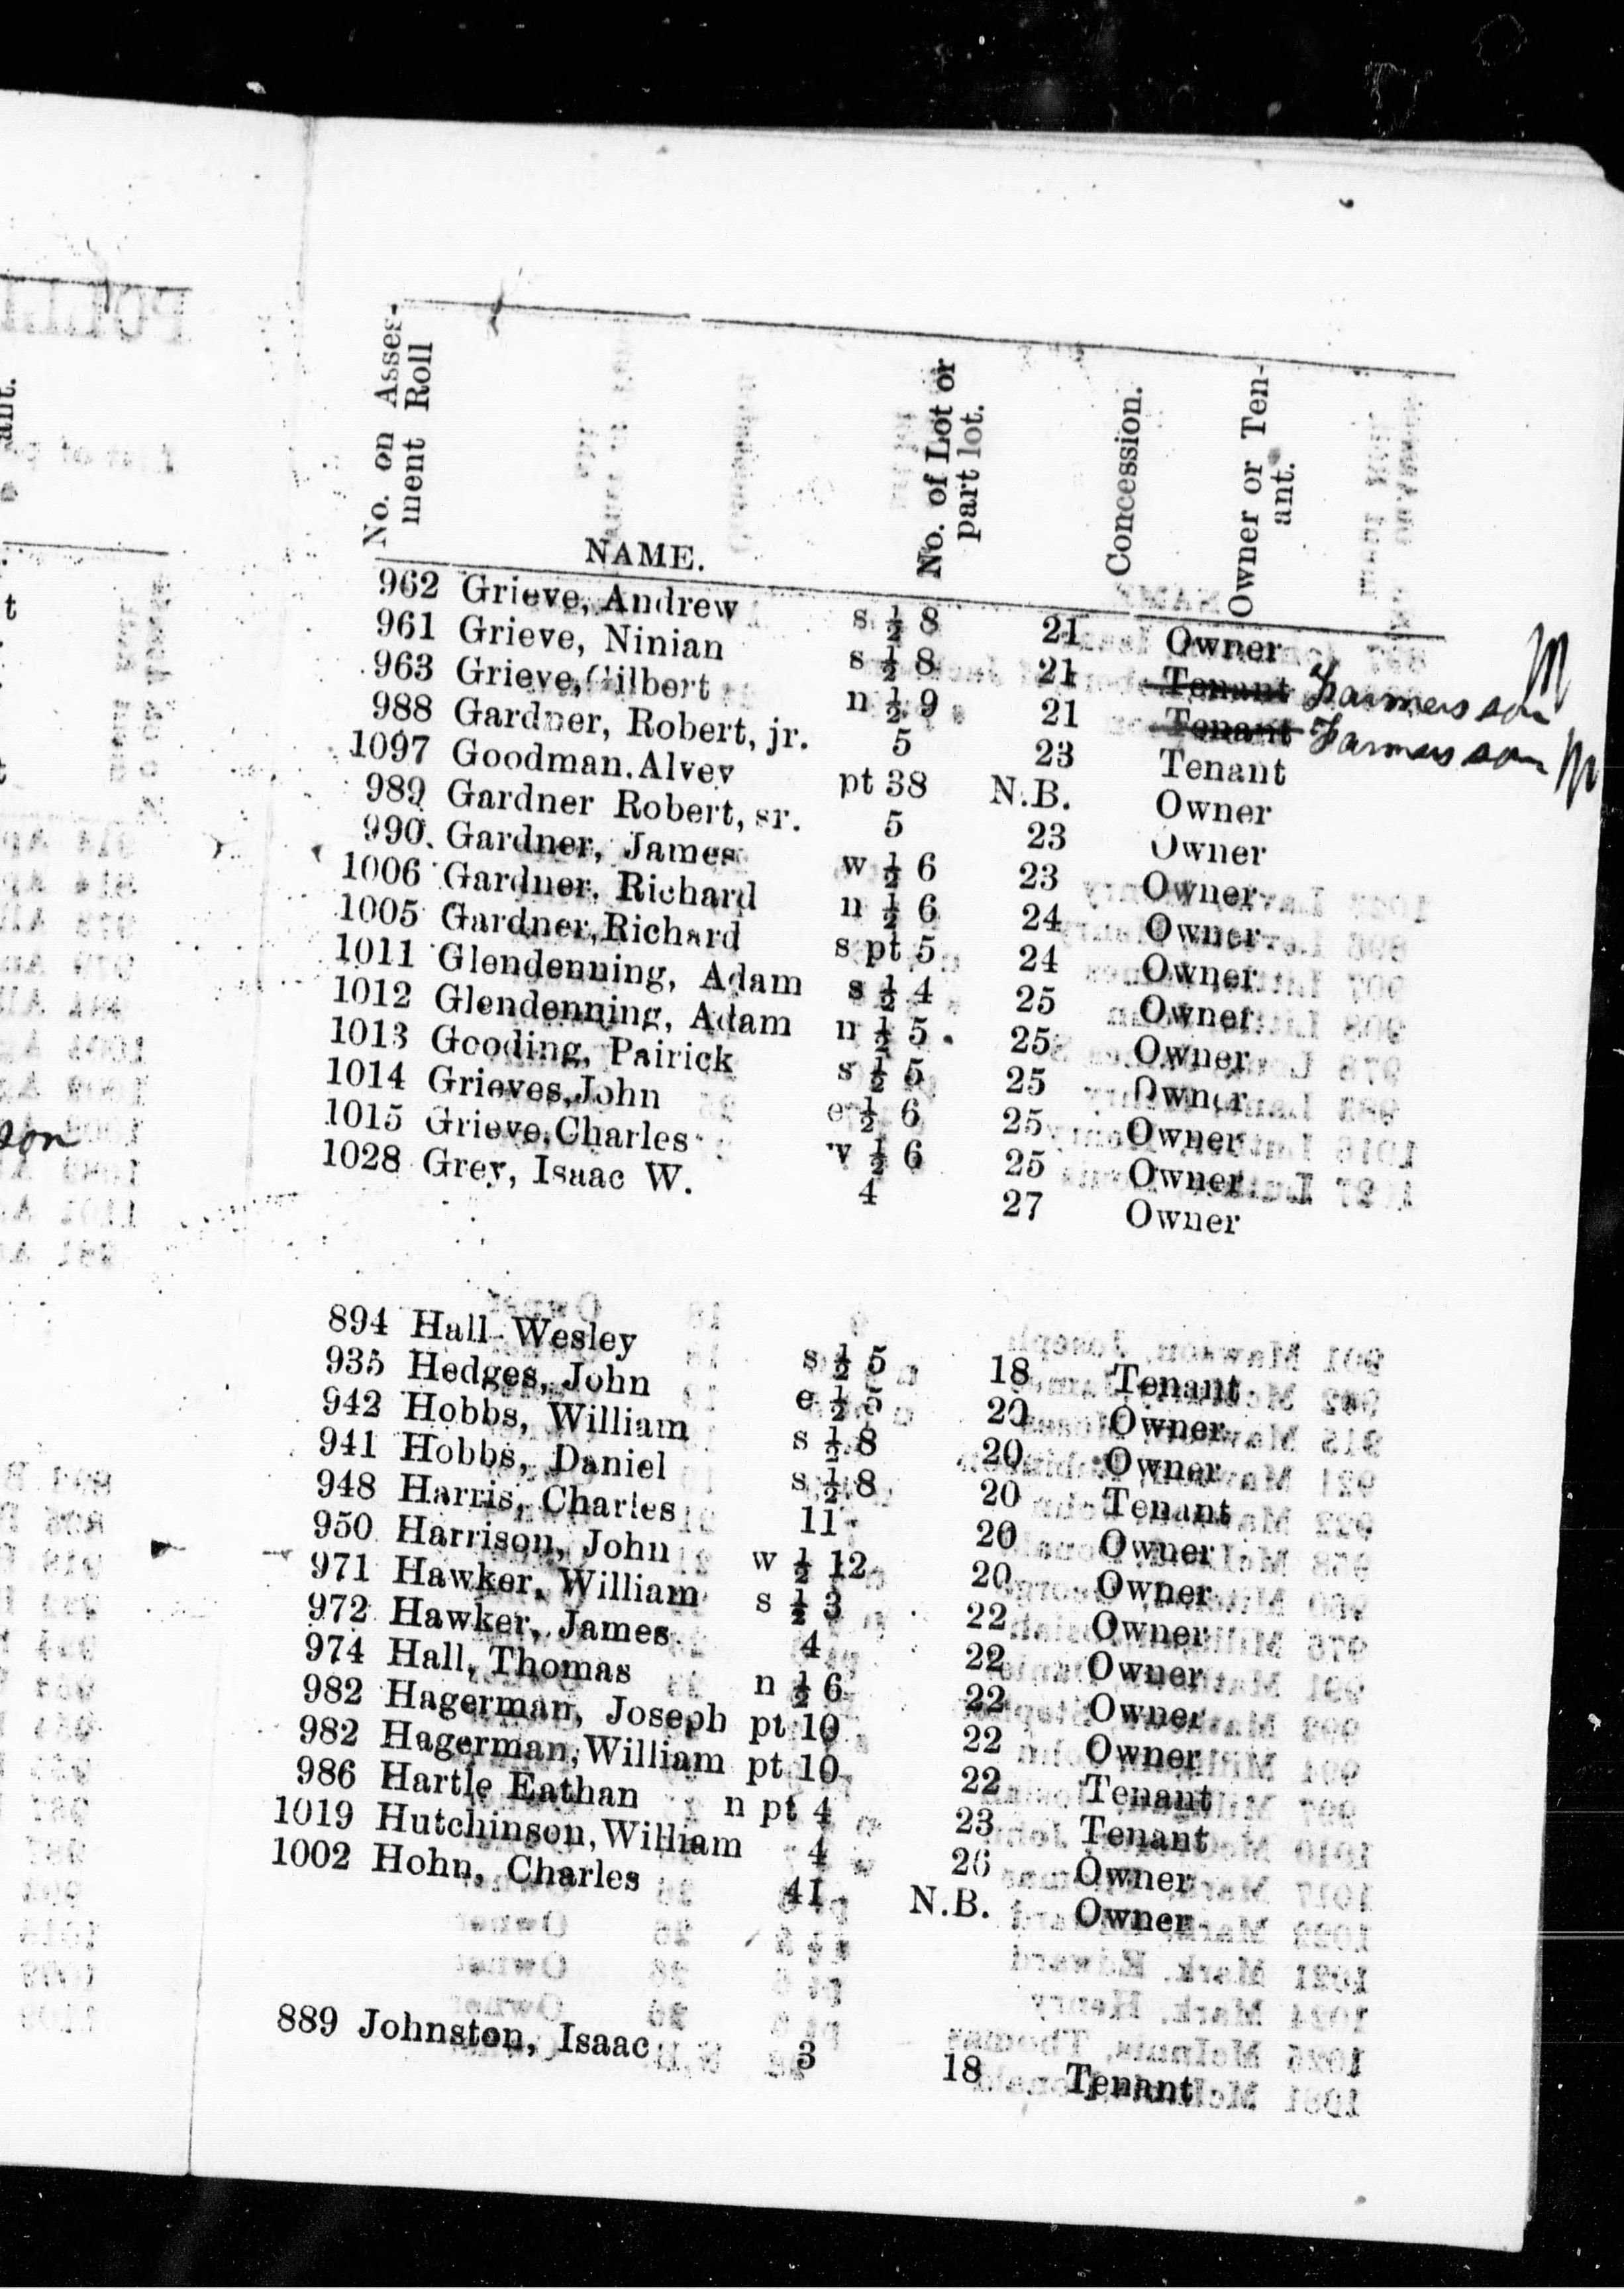 No. on Assess-
ment Roll
NAME.
No. of Lot or
part lot.
Concession.
Owner or Ten-
ant.
962 Grieve, Andrew s ½ 8 21 Owner
961 Grieve, Ninian s ½ 8 21 Tenant Farmers son M
963 Grieve, Gilbert n ½ 9 21 Tenant Farmers son M
988 Gardner, Robert, jr. 5 23 Tenant
1097 Goodman. Alvey pt 38 N.B. Owner
989 Gardner Robert, sr. 5 23 Owner
990. Gardner, James w ½ 6 23 Owner
1006 Gardner, Richard n ½ 6 24 Owner
1005 Gardner, Richard s pt 5 24 Owner
1011 Glendenning, Adam s ½ 4 25 Owner
1012 Glendenning, Adam n ½ 5 25 Owner
1013 Gooding, Pairick s ½ 5 25 Owner
1014 Grieves, John e ½ 6 25 Owner
1015 Grieve, Charles w ½ 6 25 Owner
1028 Grey, Isaac W. 4 27 Owner
894 Hall Wesley s ½ 5 18 Tenant
935 Hedges, John e ½ 5 20 Owner
942 Hobbs, William s ½ 8 20 Owner
941 Hobbs, Daniel s ½ 8 20 Tenant
948 Harris, Charles 11 20 Owner
950 Harrison, John w ½ 12 20 Owner
971 Hawker, William s ½ 3 22 Owner
972 Hawker, James 4 22 Owner
974 Hall, Thomas n ½ 6 22 Owner
982 Hagerman, Joseph pt 10 22 Owner
982 Hagerman, William pt 10 22 Tenant
986 Hartle Eathan n pt 4 23 Tenant
1019 Hutchinson, William 4 26 Owner
1002 Hohn, Charles 41 N.B. Owner
889 Johnston, Isaac 3 18 Tenant
son